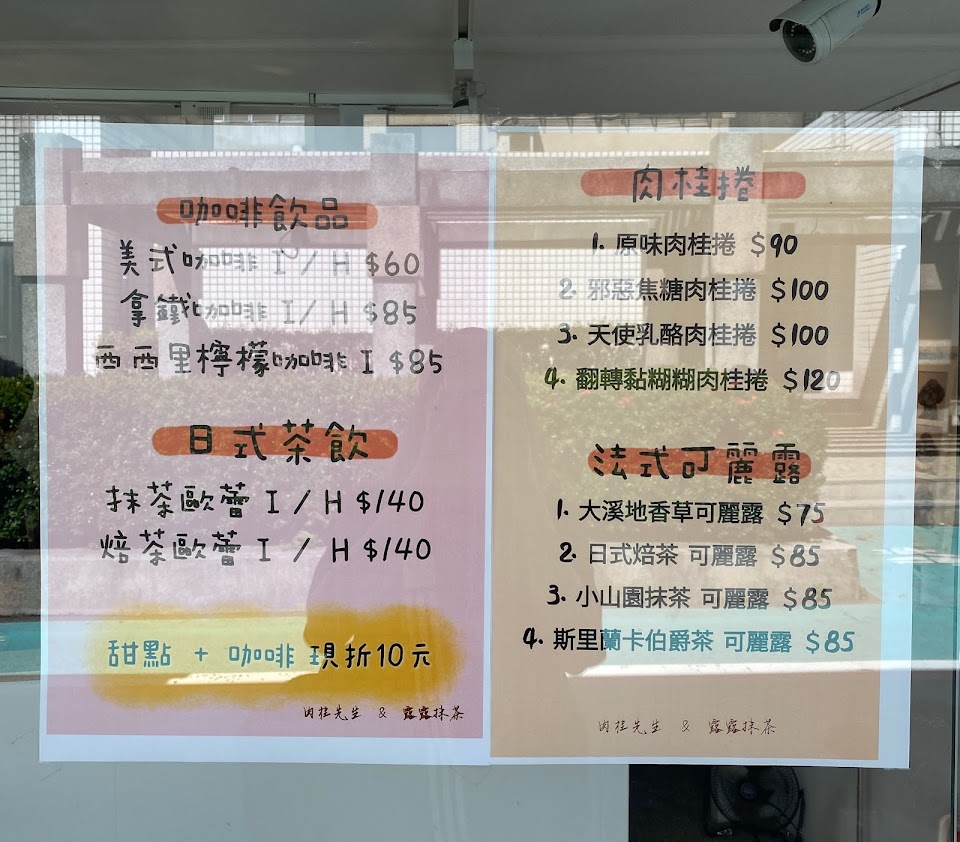 咖啡飲品
美式咖啡 I / H $60
拿鐵咖啡 I / H $85
西西里檸檬咖啡 I $85
日式茶飲
抹茶歐蕾 I / H $140
焙茶歐蕾 I / H $140
甜點 + 咖啡 現折10元
肉桂先生 & 露露抹茶
肉桂捲
1. 原味肉桂捲 $90
2. 邪惡焦糖肉桂捲 $100
3. 天使乳酪肉桂捲 $100
4. 翻轉黏糊糊肉桂捲 $120
法式可麗露
1. 大溪地香草可麗露 $75
2. 日式焙茶 可麗露 $85
3. 小山園抹茶 可麗露 $85
4. 斯里蘭卡伯爵茶 可麗露 $85
肉桂先生 & 露露抹茶